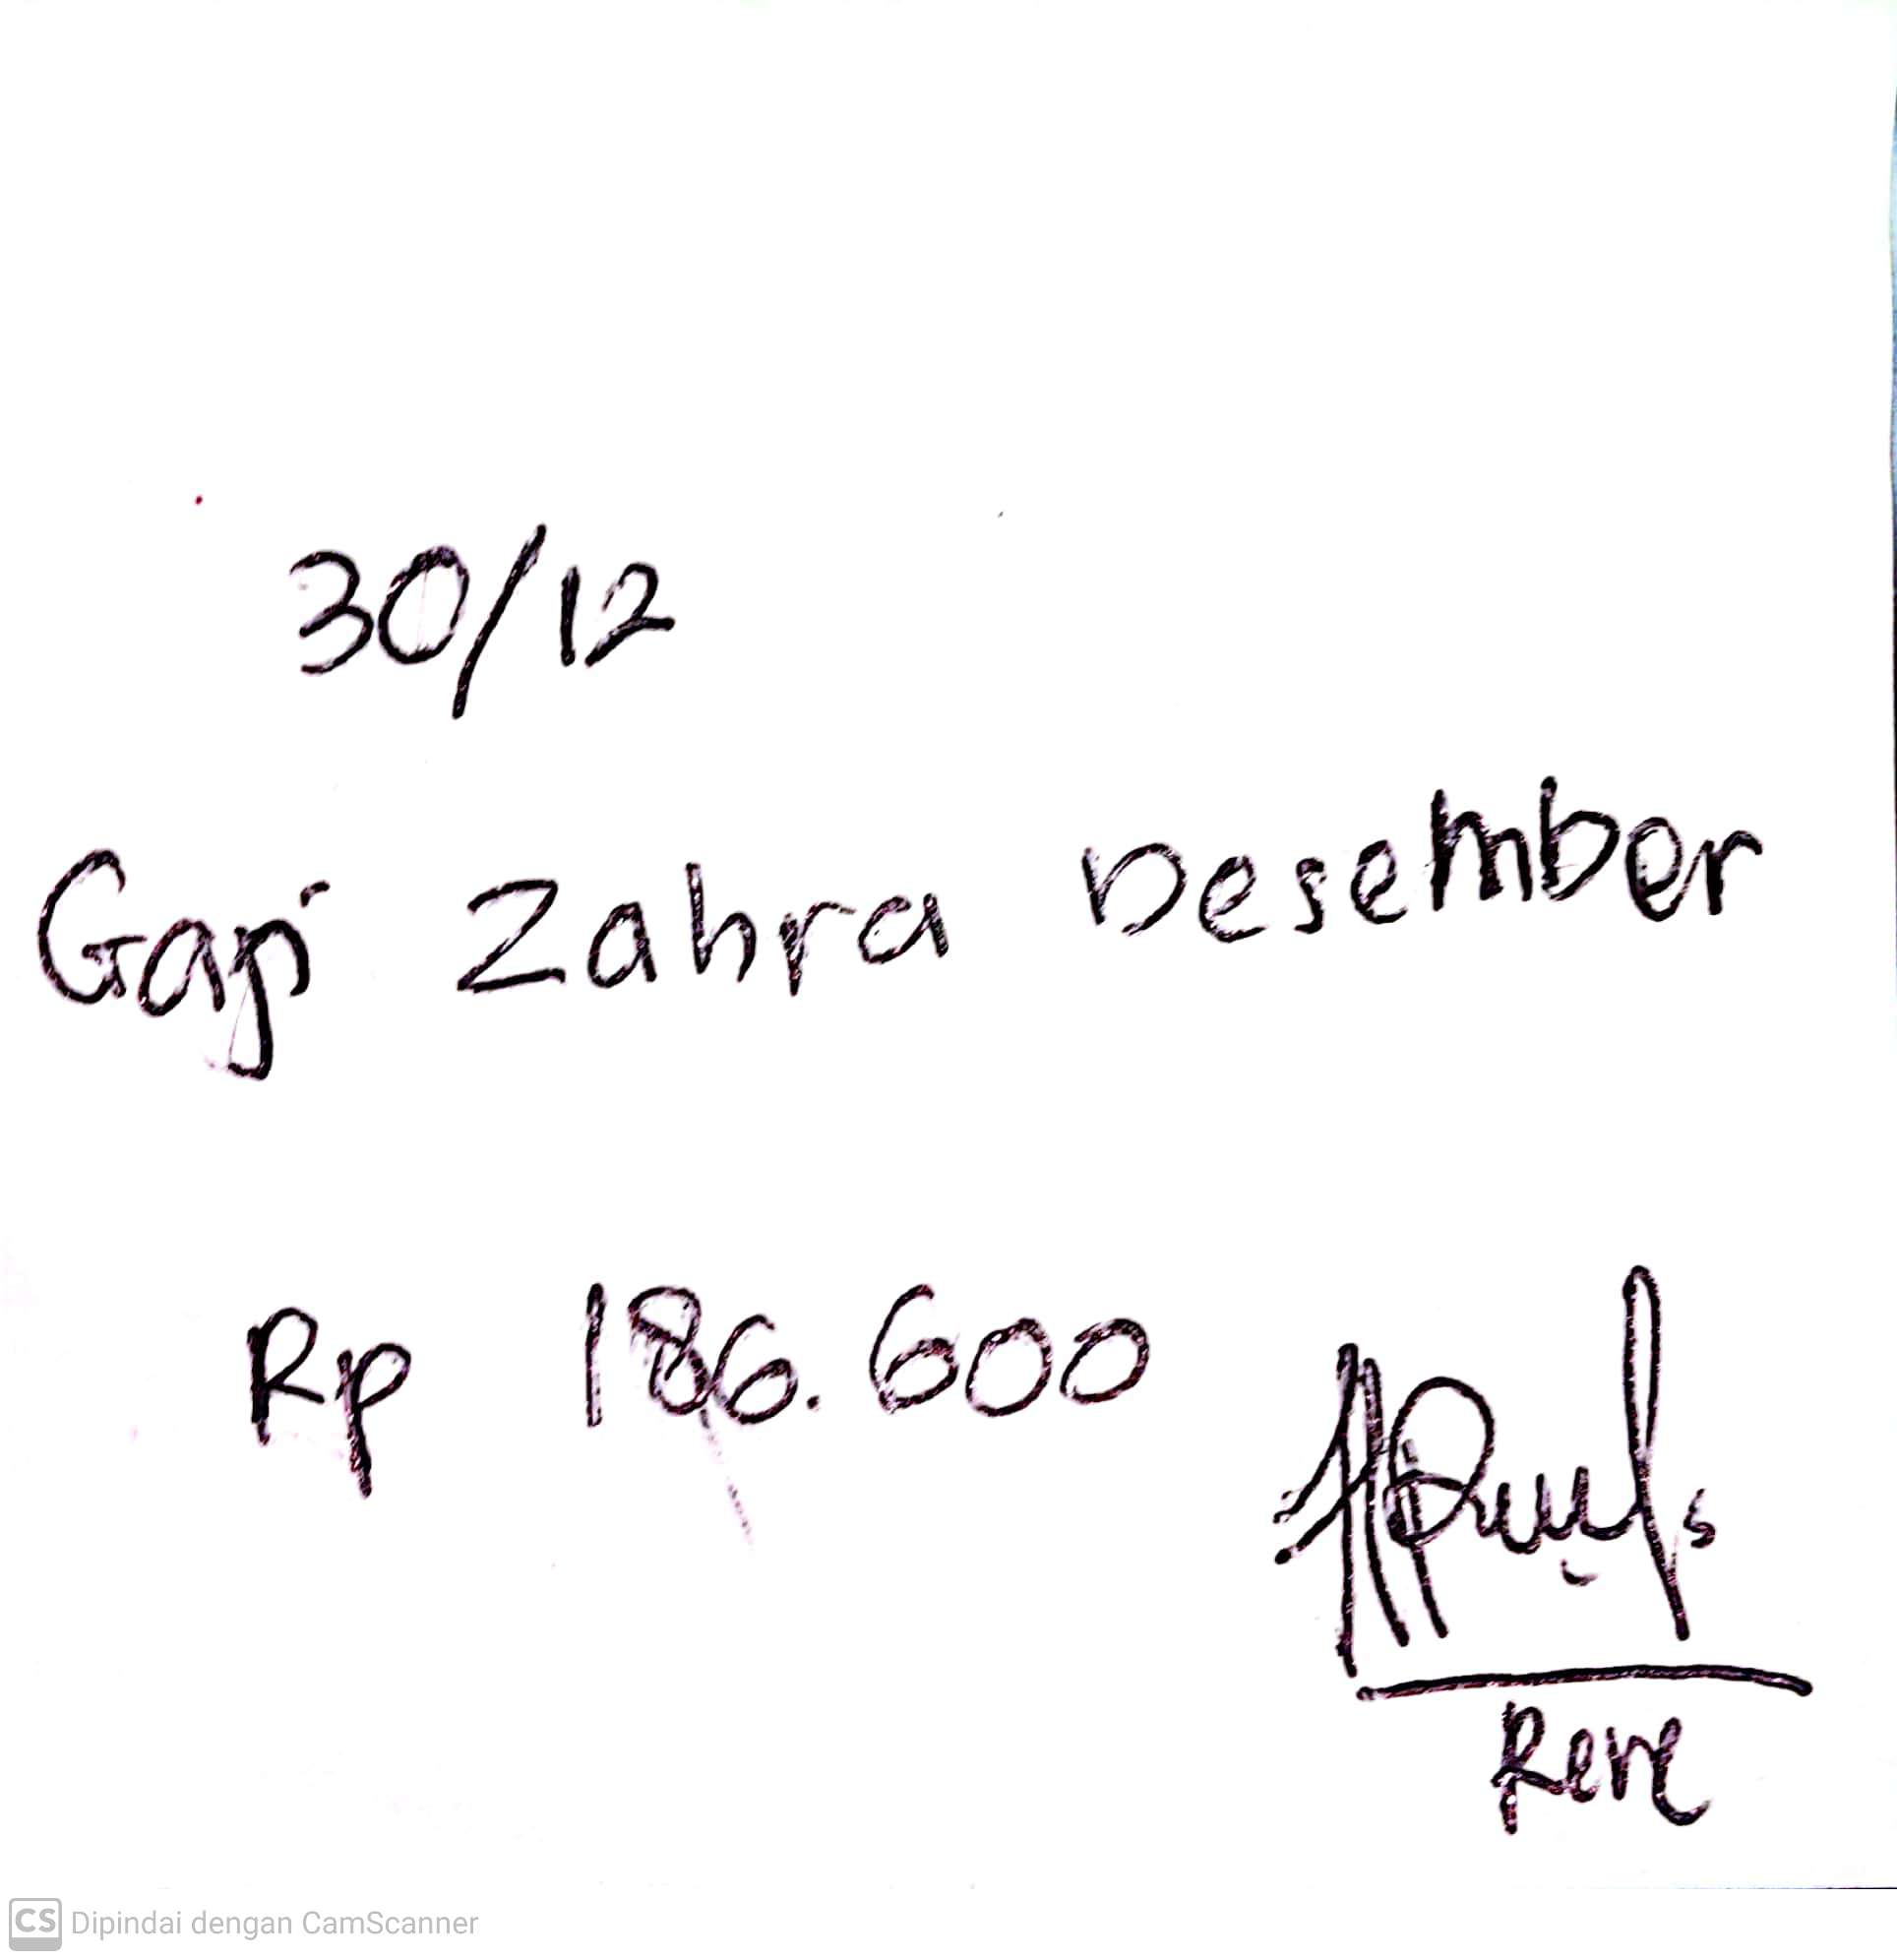 30/12
Gaji Zahra Desember
Rp 186.600
Rere
CS Dipindai dengan CamScanner